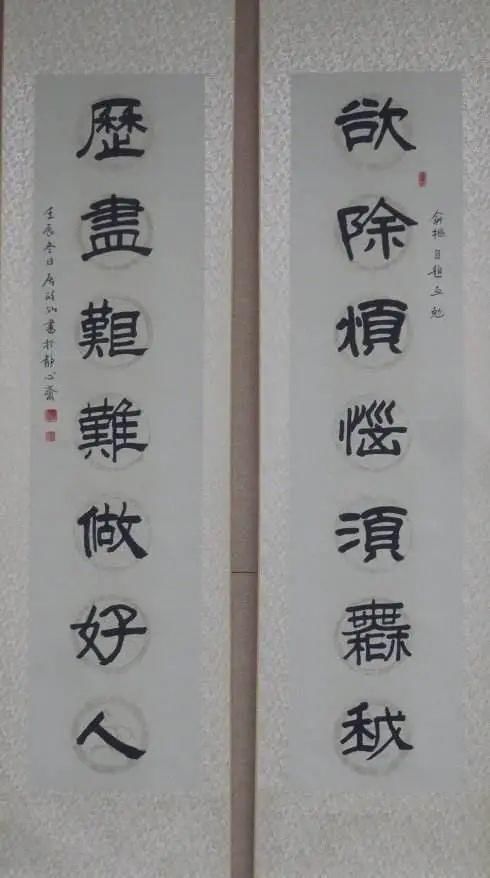 欲除煩惱須無我
自題互勉
歷盡艱難做好人
壬辰冬日書於靜心齋